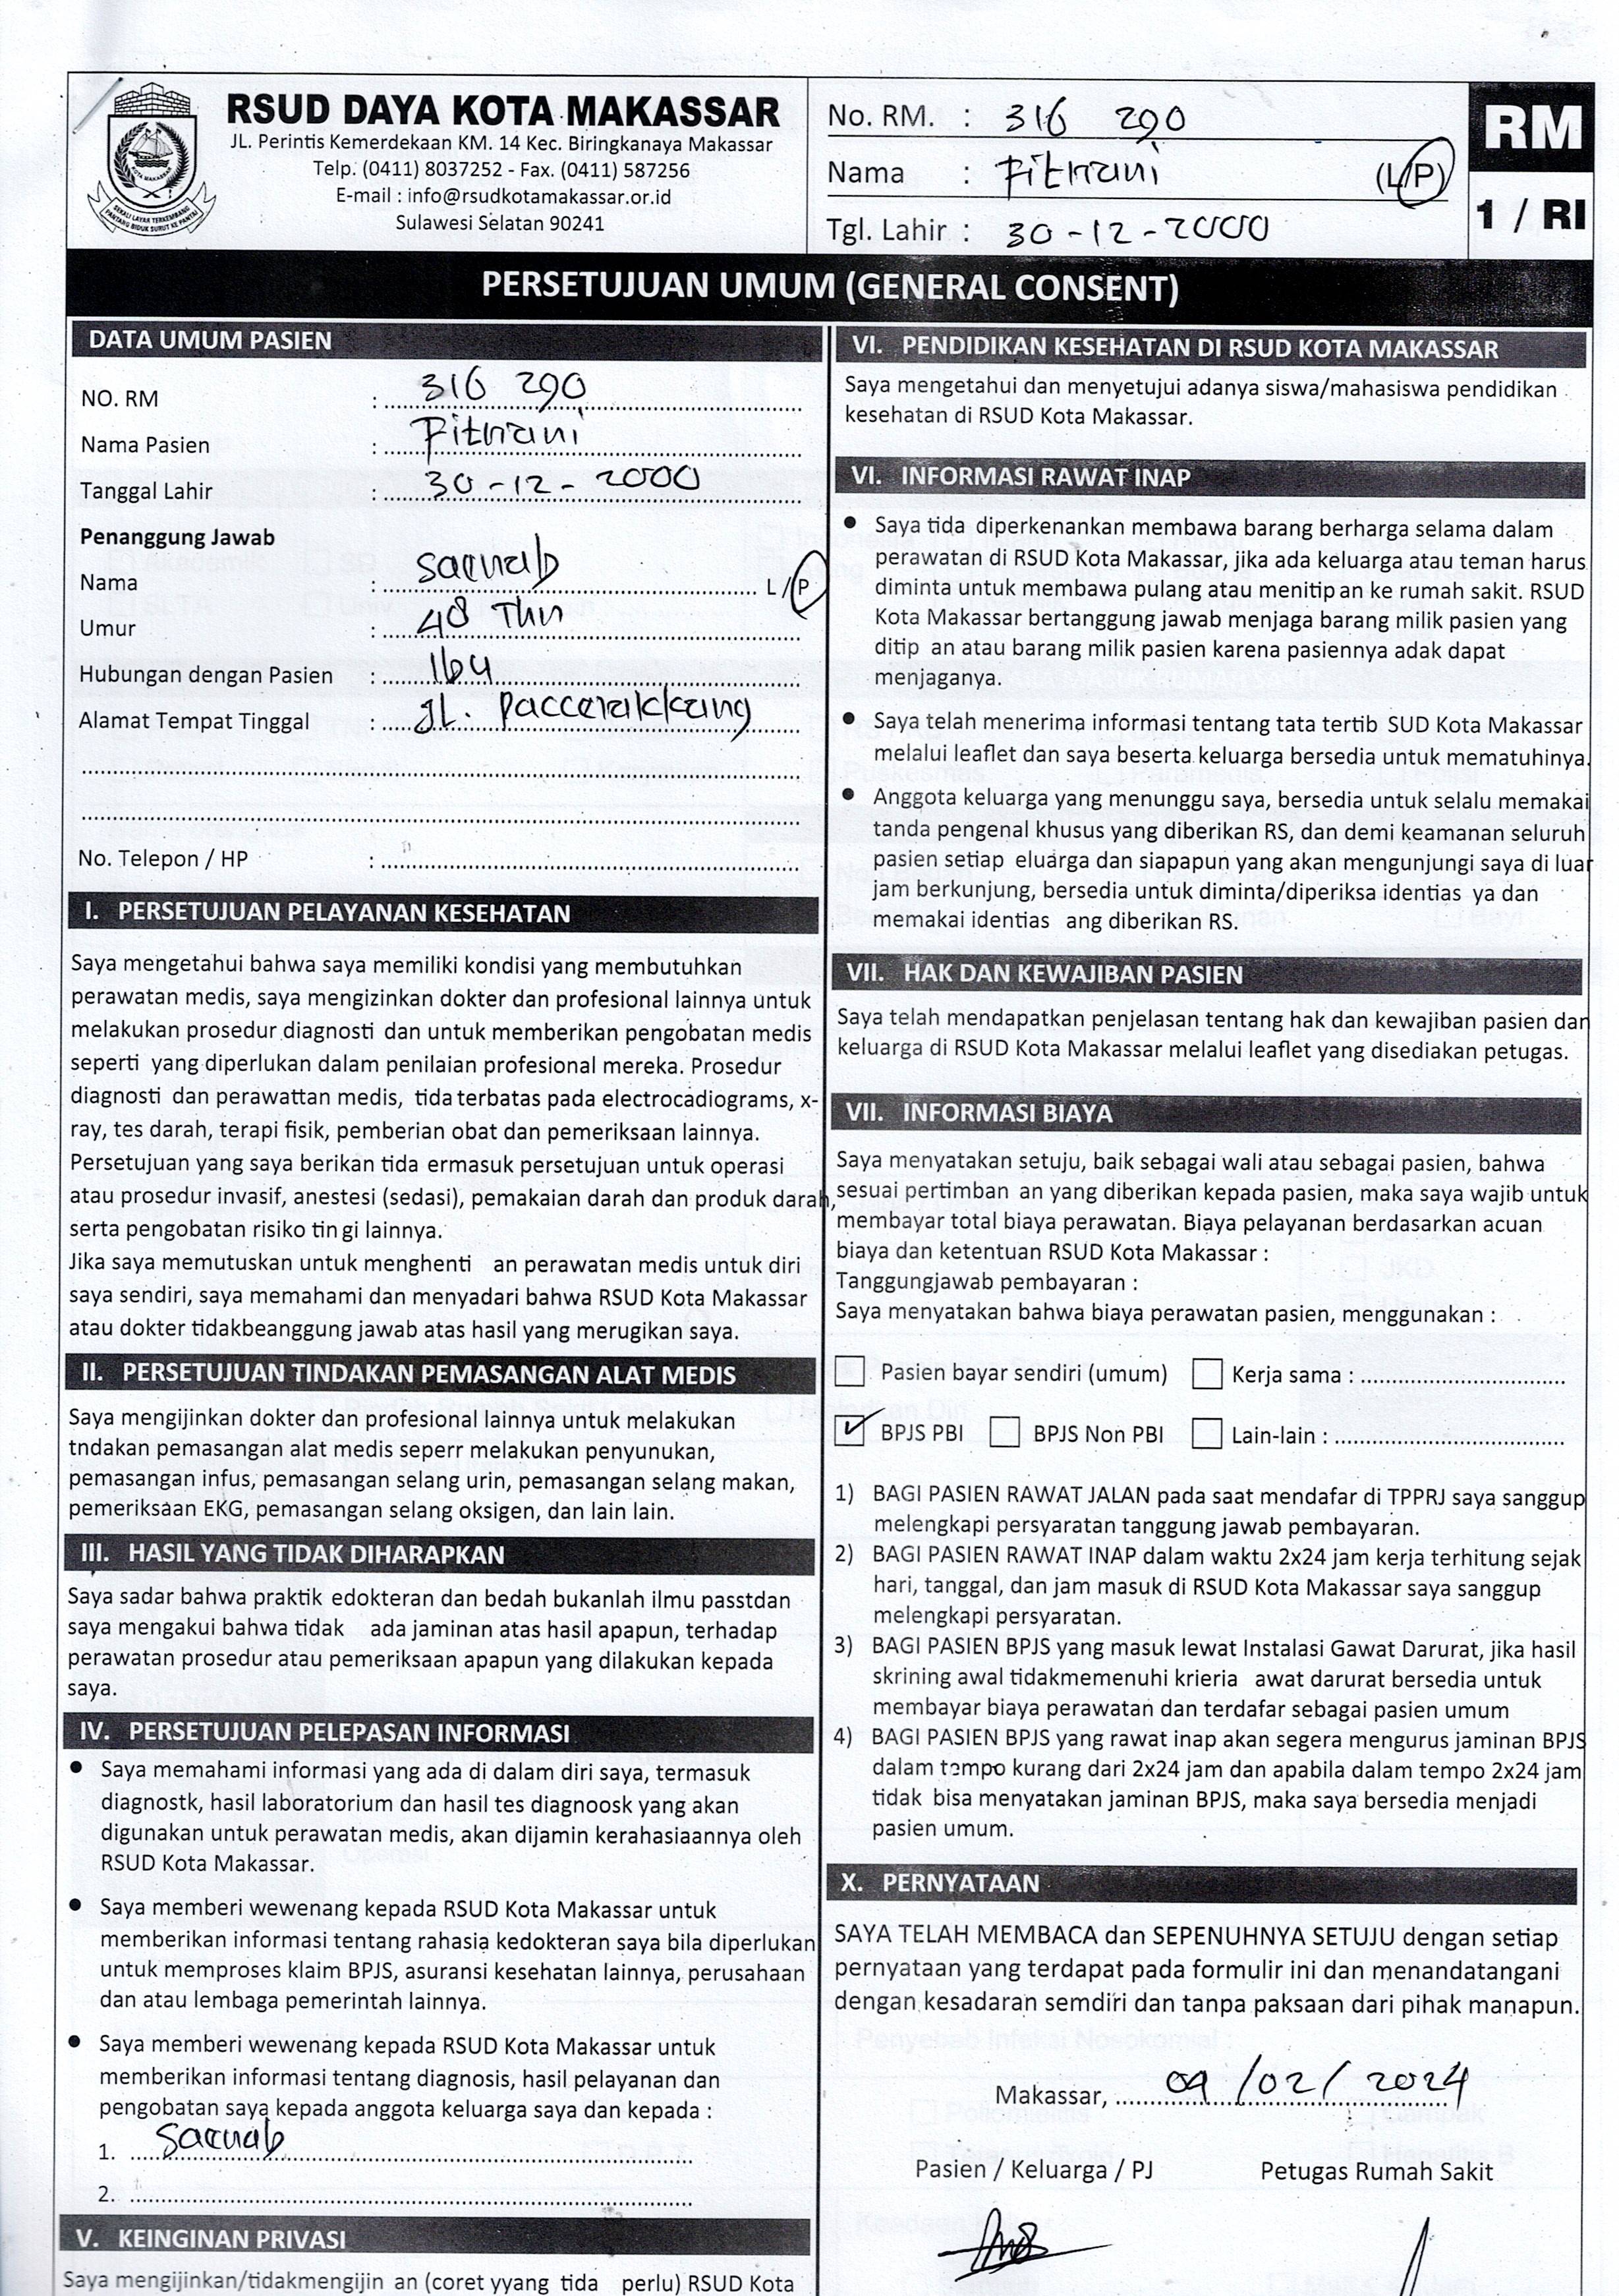 RSUD DAYA KOTA MAKASSAR
JL. Perintis Kemerdekaan KM. 14 Kec. Biringkanaya Makassar
Telp. (0411) 8037252 - Fax. (0411) 587256
E-mail : info@rsudkotamakassar.or.id
Sulawesi Selatan 90241
KOTA MAKASSAR
SEKALI LAYAR TERKEMBANG
PANTANG BIDUK SURUT KE PANTAI
No. RM. : 316 290
Nama : Fitriani (L/P)
Tgl. Lahir : 30-12-2000
RM
1 / RI
PERSETUJUAN UMUM (GENERAL CONSENT)
DATA UMUM PASIEN
NO. RM : 316 290
Nama Pasien : Fitriani
Tanggal Lahir : 30-12-2000
Penanggung Jawab
Nama : L / P
Umur : 48 Thn
Hubungan dengan Pasien : Ibu
Alamat Tempat Tinggal : JL. Paccerakkang
No. Telepon / HP :
I. PERSETUJUAN PELAYANAN KESEHATAN
Saya mengetahui bahwa saya memiliki kondisi yang membutuhkan
perawatan medis, saya mengizinkan dokter dan profesional lainnya untuk
melakukan prosedur diagnosti dan untuk memberikan pengobatan medis
seperti yang diperlukan dalam penilaian profesional mereka. Prosedur
diagnosti dan perawattan medis, tida terbatas pada electrocadiograms, x-
ray, tes darah, terapi fisik, pemberian obat dan pemeriksaan lainnya.
Persetujuan yang saya berikan tida ermasuk persetujuan untuk operasi
atau prosedur invasif, anestesi (sedasi), pemakaian darah dan produk darah,
serta pengobatan risiko tin gi lainnya.
Jika saya memutuskan untuk menghenti an perawatan medis untuk diri
saya sendiri, saya memahami dan menyadari bahwa RSUD Kota Makassar
atau dokter tidakbeanggung jawab atas hasil yang merugikan saya.
II. PERSETUJUAN TINDAKAN PEMASANGAN ALAT MEDIS
Saya mengijinkan dokter dan profesional lainnya untuk melakukan
tndakan pemasangan alat medis seperr melakukan penyunukan,
pemasangan infus, pemasangan selang urin, pemasangan selang makan,
pemeriksaan EKG, pemasangan selang oksigen, dan lain lain.
III. HASIL YANG TIDAK DIHARAPKAN
Saya sadar bahwa praktik edokteran dan bedah bukanlah ilmu passtdan
saya mengakui bahwa tidak ada jaminan atas hasil apapun, terhadap
perawatan prosedur atau pemeriksaan apapun yang dilakukan kepada
saya.
IV. PERSETUJUAN PELEPASAN INFORMASI
● Saya memahami informasi yang ada di dalam diri saya, termasuk
diagnostk, hasil laboratorium dan hasil tes diagnoosk yang akan
digunakan untuk perawatan medis, akan dijamin kerahasiaannya oleh
RSUD Kota Makassar.
● Saya memberi wewenang kepada RSUD Kota Makassar untuk
memberikan informasi tentang rahasia kedokteran saya bila diperlukan
untuk memproses klaim BPJS, asuransi kesehatan lainnya, perusahaan
dan atau lembaga pemerintah lainnya.
● Saya memberi wewenang kepada RSUD Kota Makassar untuk
memberikan informasi tentang diagnosis, hasil pelayanan dan
pengobatan saya kepada anggota keluarga saya dan kepada :
1.
2.
V. KEINGINAN PRIVASI
Saya mengijinkan/tidakmengijin an (coret yyang tida perlu) RSUD Kota
VI. PENDIDIKAN KESEHATAN DI RSUD KOTA MAKASSAR
Saya mengetahui dan menyetujui adanya siswa/mahasiswa pendidikan
kesehatan di RSUD Kota Makassar.
VI. INFORMASI RAWAT INAP
● Saya tida diperkenankan membawa barang berharga selama dalam
perawatan di RSUD Kota Makassar, jika ada keluarga atau teman harus
diminta untuk membawa pulang atau menitip an ke rumah sakit. RSUD
Kota Makassar bertanggung jawab menjaga barang milik pasien yang
ditip an atau barang milik pasien karena pasiennya adak dapat
menjaganya.
● Saya telah menerima informasi tentang tata tertib SUD Kota Makassar
melalui leaflet dan saya beserta keluarga bersedia untuk mematuhinya.
● Anggota keluarga yang menunggu saya, bersedia untuk selalu memakai
tanda pengenal khusus yang diberikan RS, dan demi keamanan seluruh
pasien setiap eluarga dan siapapun yang akan mengunjungi saya di luar
jam berkunjung, bersedia untuk diminta/diperiksa identias ya dan
memakai identias ang diberikan RS.
VII. HAK DAN KEWAJIBAN PASIEN
Saya telah mendapatkan penjelasan tentang hak dan kewajiban pasien dan
keluarga di RSUD Kota Makassar melalui leaflet yang disediakan petugas.
VII. INFORMASI BIAYA
Saya menyatakan setuju, baik sebagai wali atau sebagai pasien, bahwa
sesuai pertimban an yang diberikan kepada pasien, maka saya wajib untuk
membayar total biaya perawatan. Biaya pelayanan berdasarkan acuan
biaya dan ketentuan RSUD Kota Makassar :
Tanggungjawab pembayaran :
Saya menyatakan bahwa biaya perawatan pasien, menggunakan :
☐ Pasien bayar sendiri (umum) ☐ Kerja sama :
☑ BPJS PBI ☐ BPJS Non PBI ☐ Lain-lain :
1) BAGI PASIEN RAWAT JALAN pada saat mendafar di TPPRJ saya sanggup
melengkapi persyaratan tanggung jawab pembayaran.
2) BAGI PASIEN RAWAT INAP dalam waktu 2x24 jam kerja terhitung sejak
hari, tanggal, dan jam masuk di RSUD Kota Makassar saya sanggup
melengkapi persyaratan.
3) BAGI PASIEN BPJS yang masuk lewat Instalasi Gawat Darurat, jika hasil
skrining awal tidakmemenuhi krieria awat darurat bersedia untuk
membayar biaya perawatan dan terdafar sebagai pasien umum
4) BAGI PASIEN BPJS yang rawat inap akan segera mengurus jaminan BPJS
dalam tempo kurang dari 2x24 jam dan apabila dalam tempo 2x24 jam
tidak bisa menyatakan jaminan BPJS, maka saya bersedia menjadi
pasien umum.
X. PERNYATAAN
SAYA TELAH MEMBACA dan SEPENUHNYA SETUJU dengan setiap
pernyataan yang terdapat pada formulir ini dan menandatangani
dengan kesadaran semdiri dan tanpa paksaan dari pihak manapun.
Makassar, 09/02/2024
Pasien / Keluarga / PJ Petugas Rumah Sakit